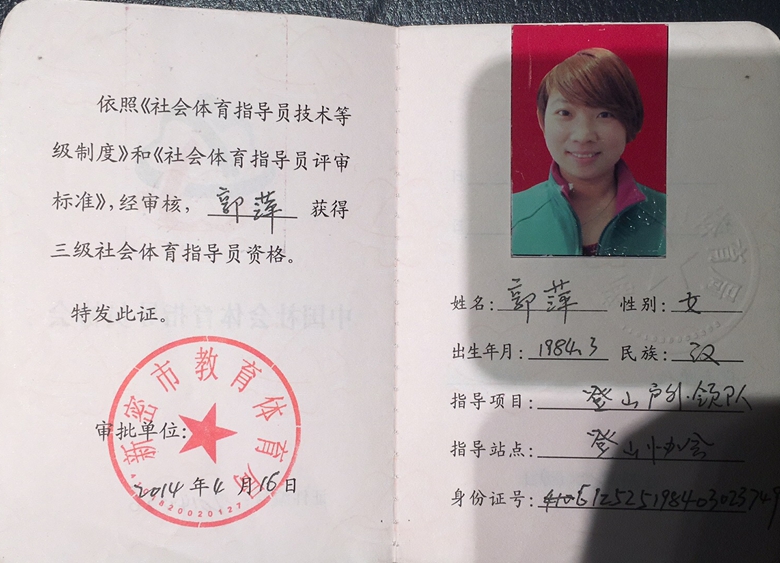 依照《社会体育指导员技术等
级制度》和《社会体育指导员评审
标准》,经审核, 郭萍 获得
三级社会体育指导员资格。
特发此证。
新密市教育体育局
审批单位:
2014年4月16日
姓名: 郭萍 性别: 女
出生年月: 1984.3 民族: 汉
指导项目: 登山户外·领队
指导站点: 登山办会
身份证号: